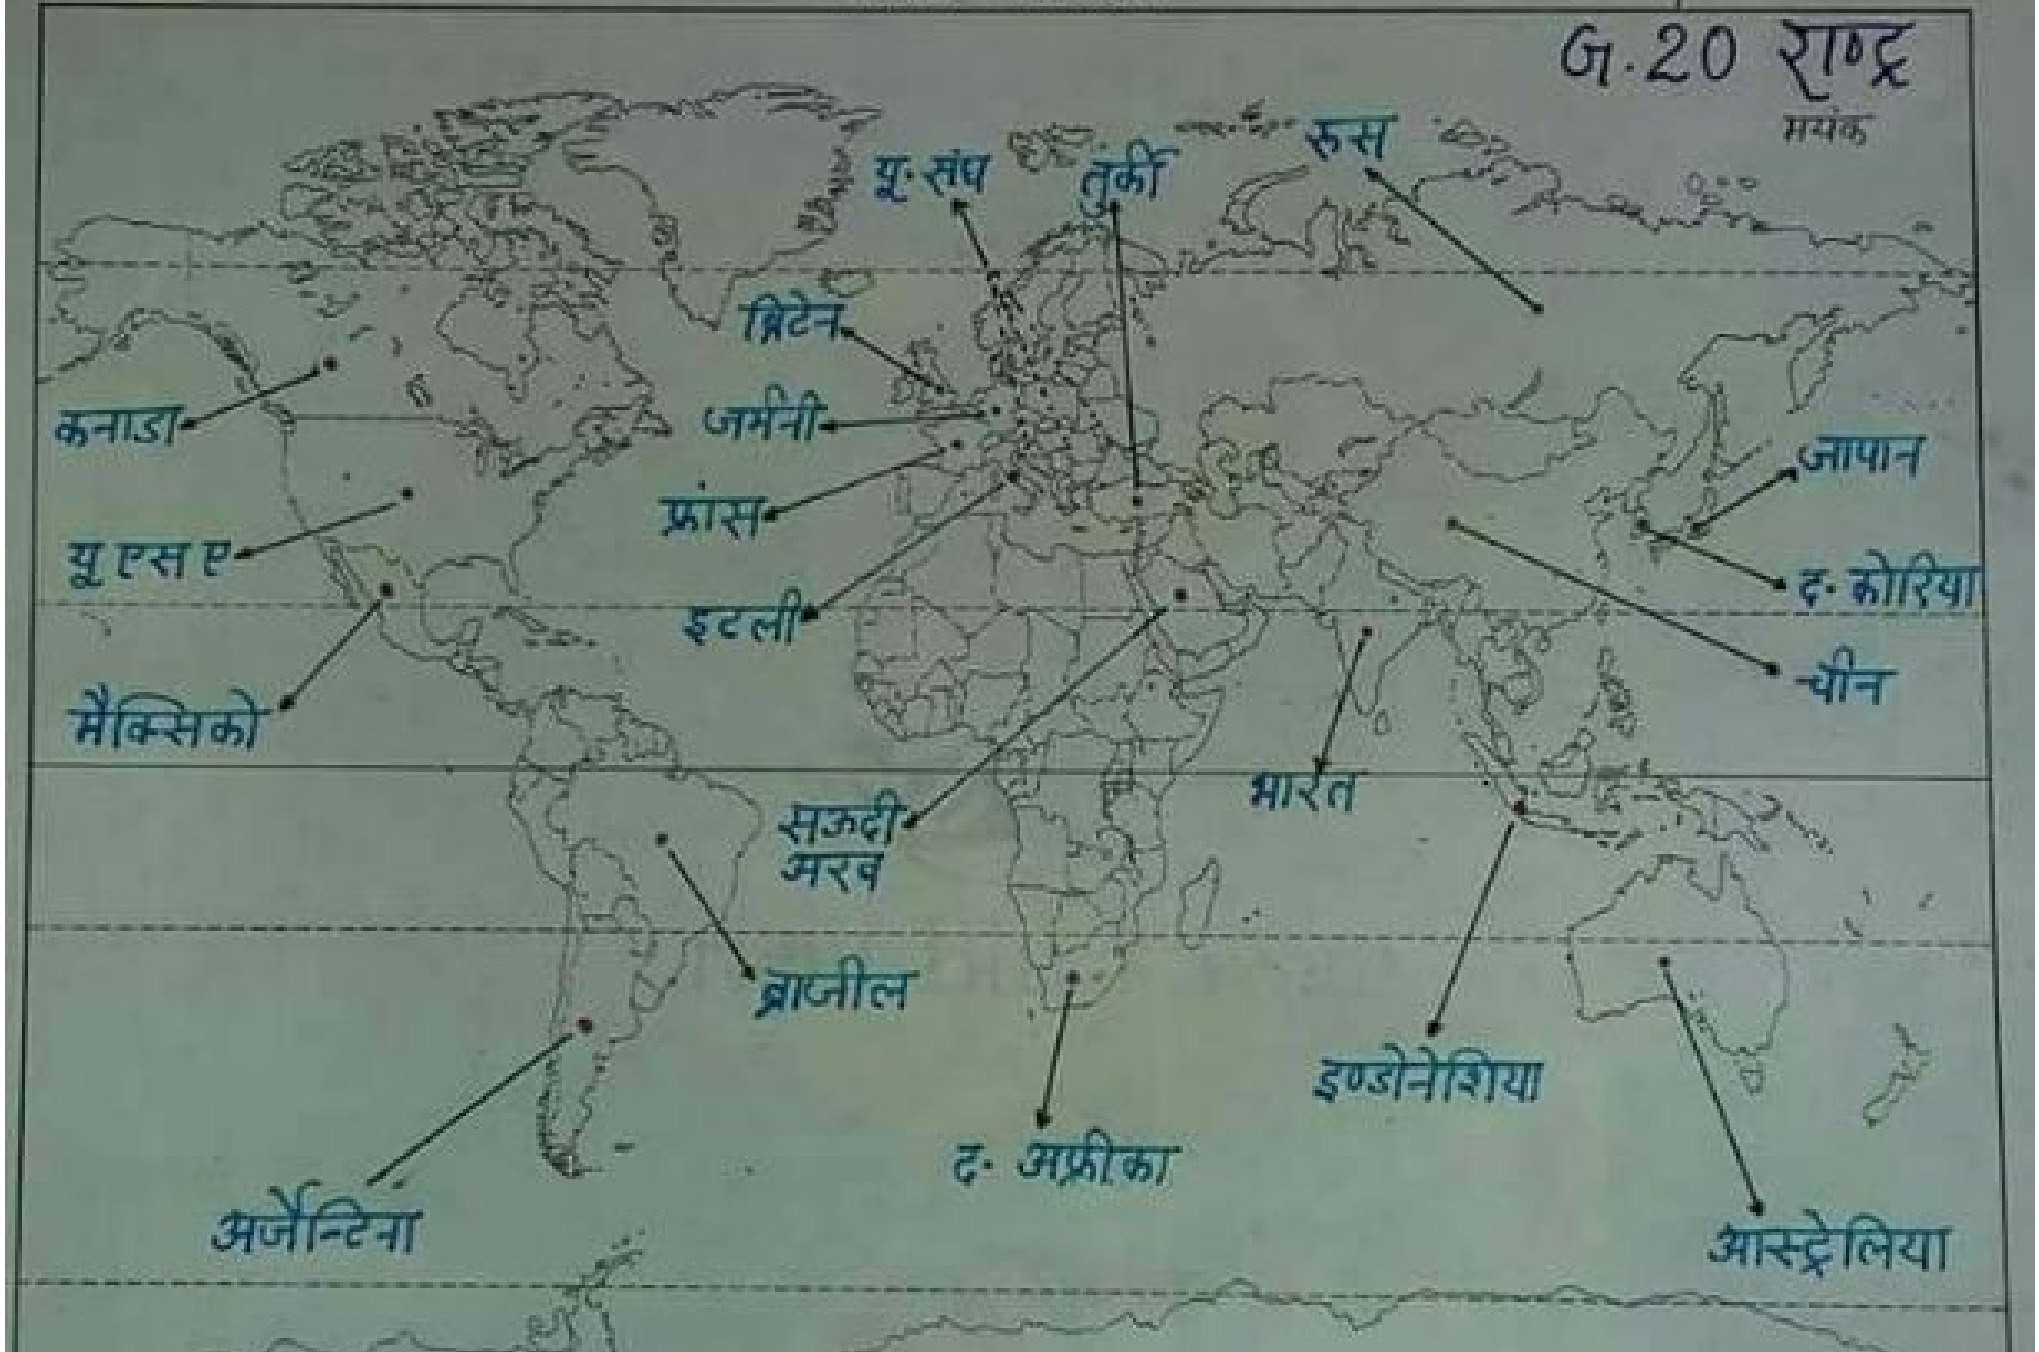 G.20 राष्ट्र
मयंक
रूस
यू. संघ
तुर्की
ब्रिटेन
कनाडा
जर्मनी
जापान
फ्रांस
यू एस ए
द. कोरिया
इटली
चीन
मैक्सिको
भारत
सऊदी
अरव
ब्राजील
इण्डोनेशिया
द. अफ्रीका
अर्जैन्टिना
आस्ट्रेलिया